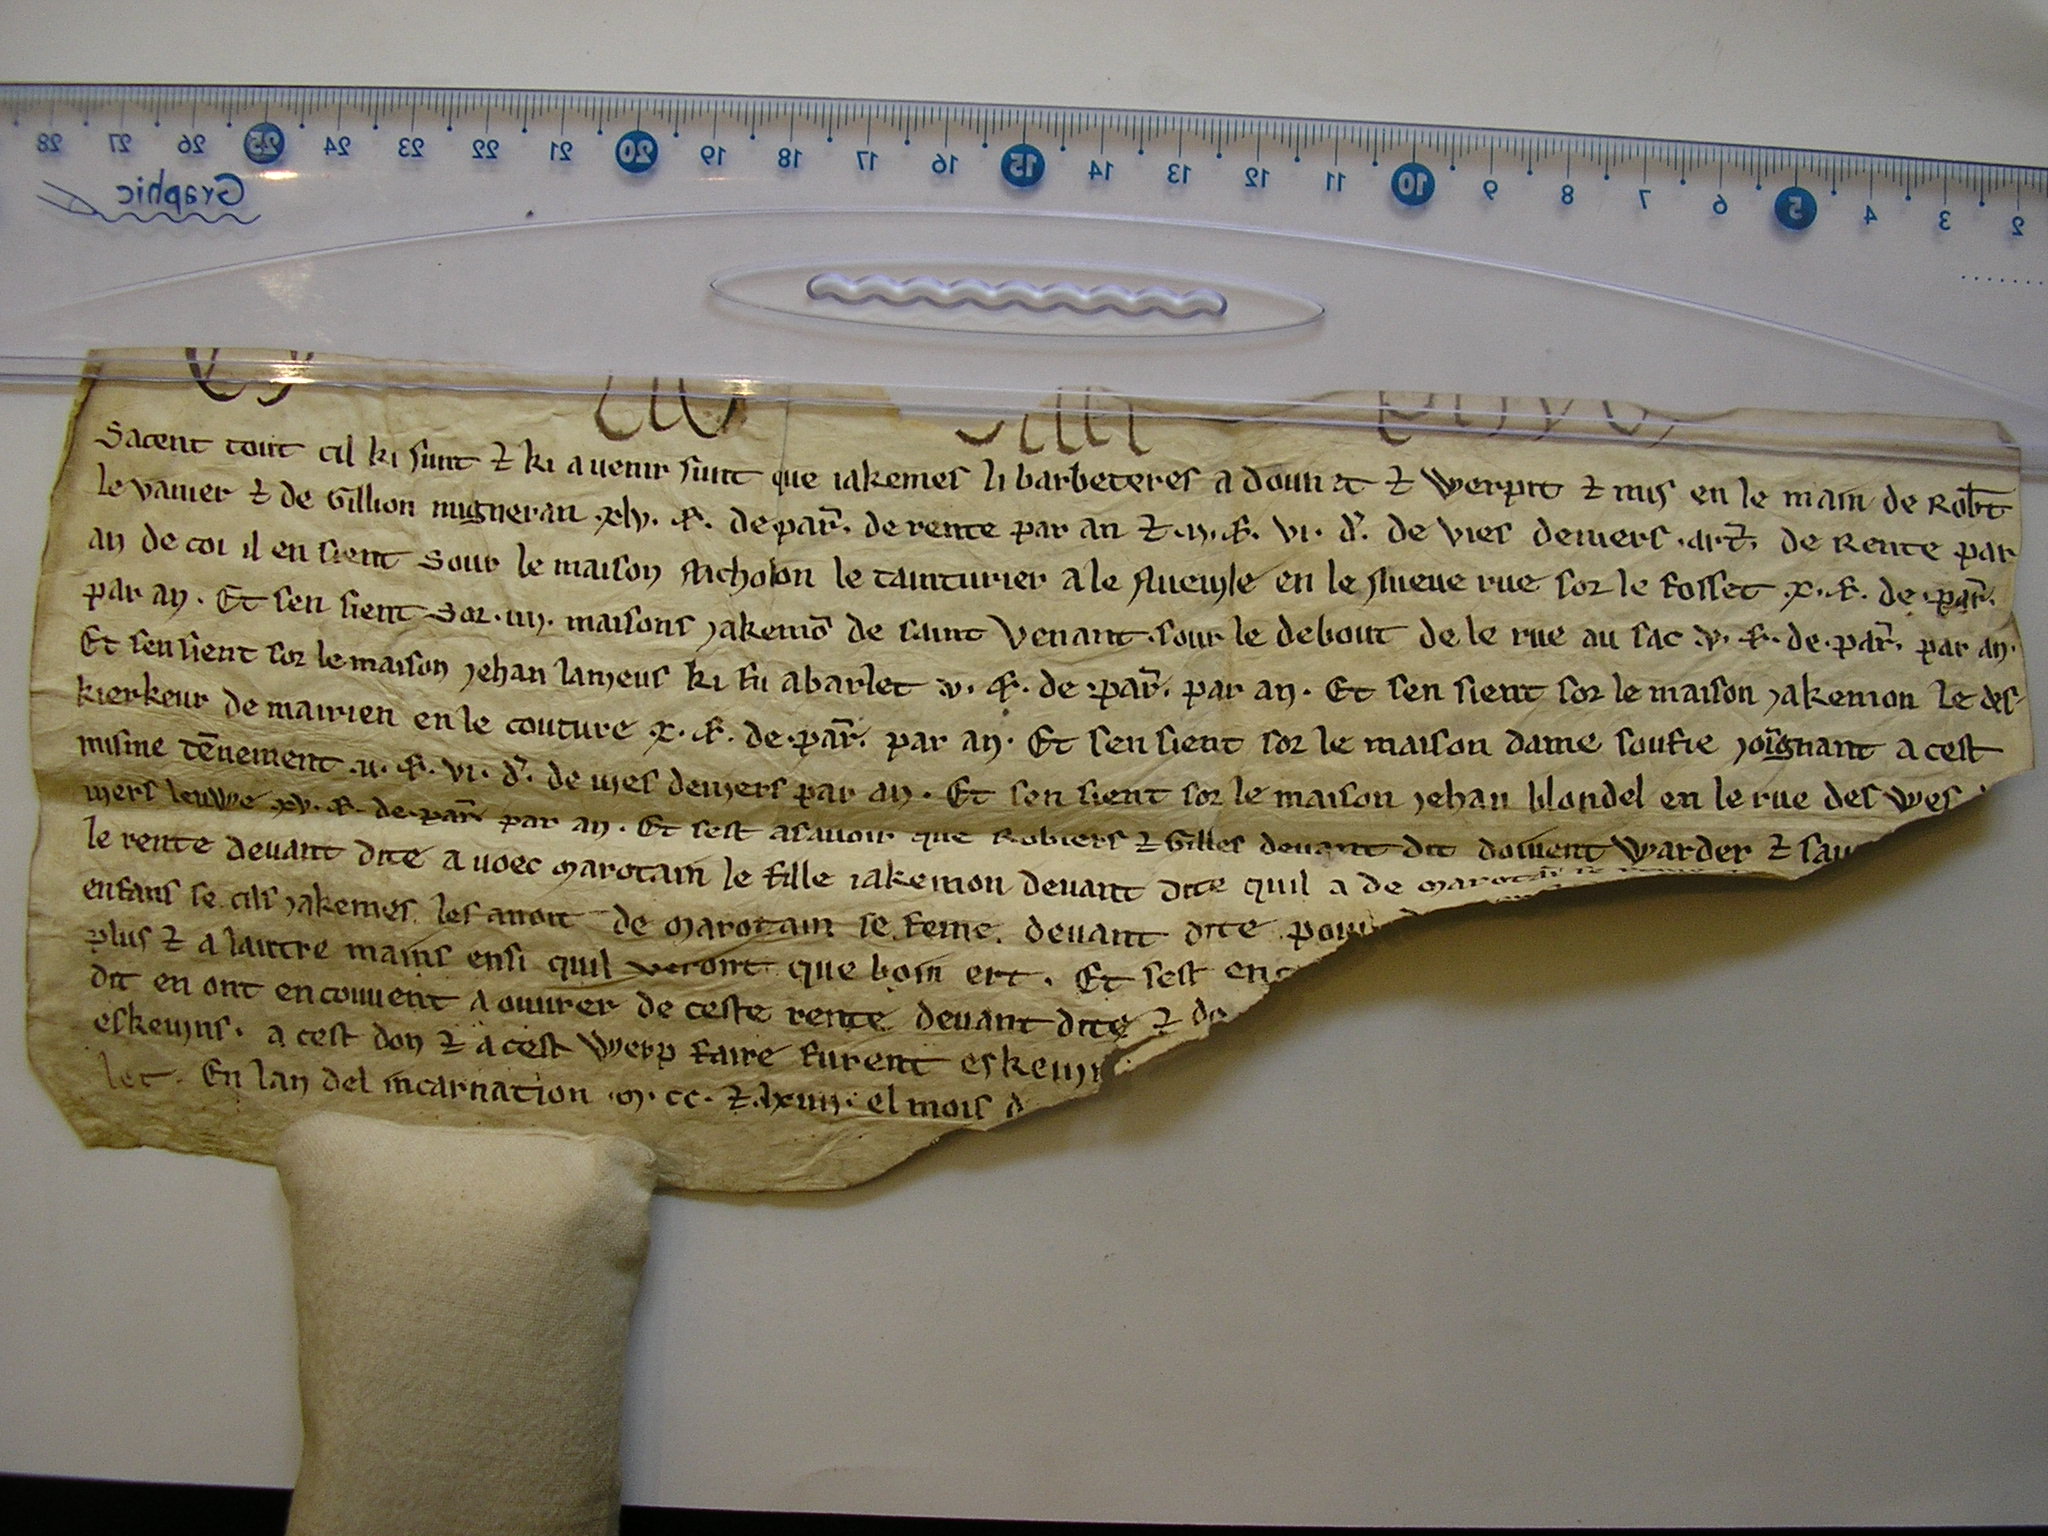 Sacent tout cil ki sunt ⁊ ki a venir sunt que iakemes li barbeteres a dounet ⁊ Werpit ⁊ mis en le main de Rob̄t
le vanier ⁊ de Gillion migneran .xlv. s̄. de par̄. de rente par an ⁊ .ij. s̄. vi. d̄. de vies deniers .art̄. de Rente par
an de coi il en sient Sour le maison Nicholon le tainturier a le Nueuile en le Nueue rue sor le fosset .x. s̄. de .par̄.
par an . Et sen sient Sor .iiij. maisons jakemō de saint Venant .sour le debout de le rue au sac .v. s̄. de .par̄. par an.
Et sen sient sor le maison jehan lanieus ki fu a barlet .v. s̄. de .par̄. par an . Et sen sient sor le maison jakemon le des-
kierkeur de mairien en le couture .x. s̄. de .par̄. par an . Et sen sient sor le maison dame soufie joignant a cest
misme tēnement .ii. s̄. vi. d̄. de vies deniers par an . Et sen sient sor le maison jehan blondel en le rue des Wes
viers leuwe .xv. s̄. de .par̄. par an . Et sest asavoir que Robiers ⁊ Gilles devant dit doivent Warder ⁊ sau
le rente devant dite avoec marotain le fille iakemon devant dite quil a de
enfans se cils jakemes les avoit de marotain se feme devant dite pour
plus ⁊ a lautre mains ensi quil veront que boin ert . Et sest en
dit en ont encouvent a ouvrer de ceste rente devant dite ⁊ do
eskevins . a cest don ⁊ a cest Werp faire furent eskevin
let . En lan del incarnation .m. cc. ⁊ .lxiiij. el mois d
Graphic
28 27 26 25 24 23 22 21 20 19 18 17 16 15 14 13 12 11 10 9 8 7 6 5 4 3 2